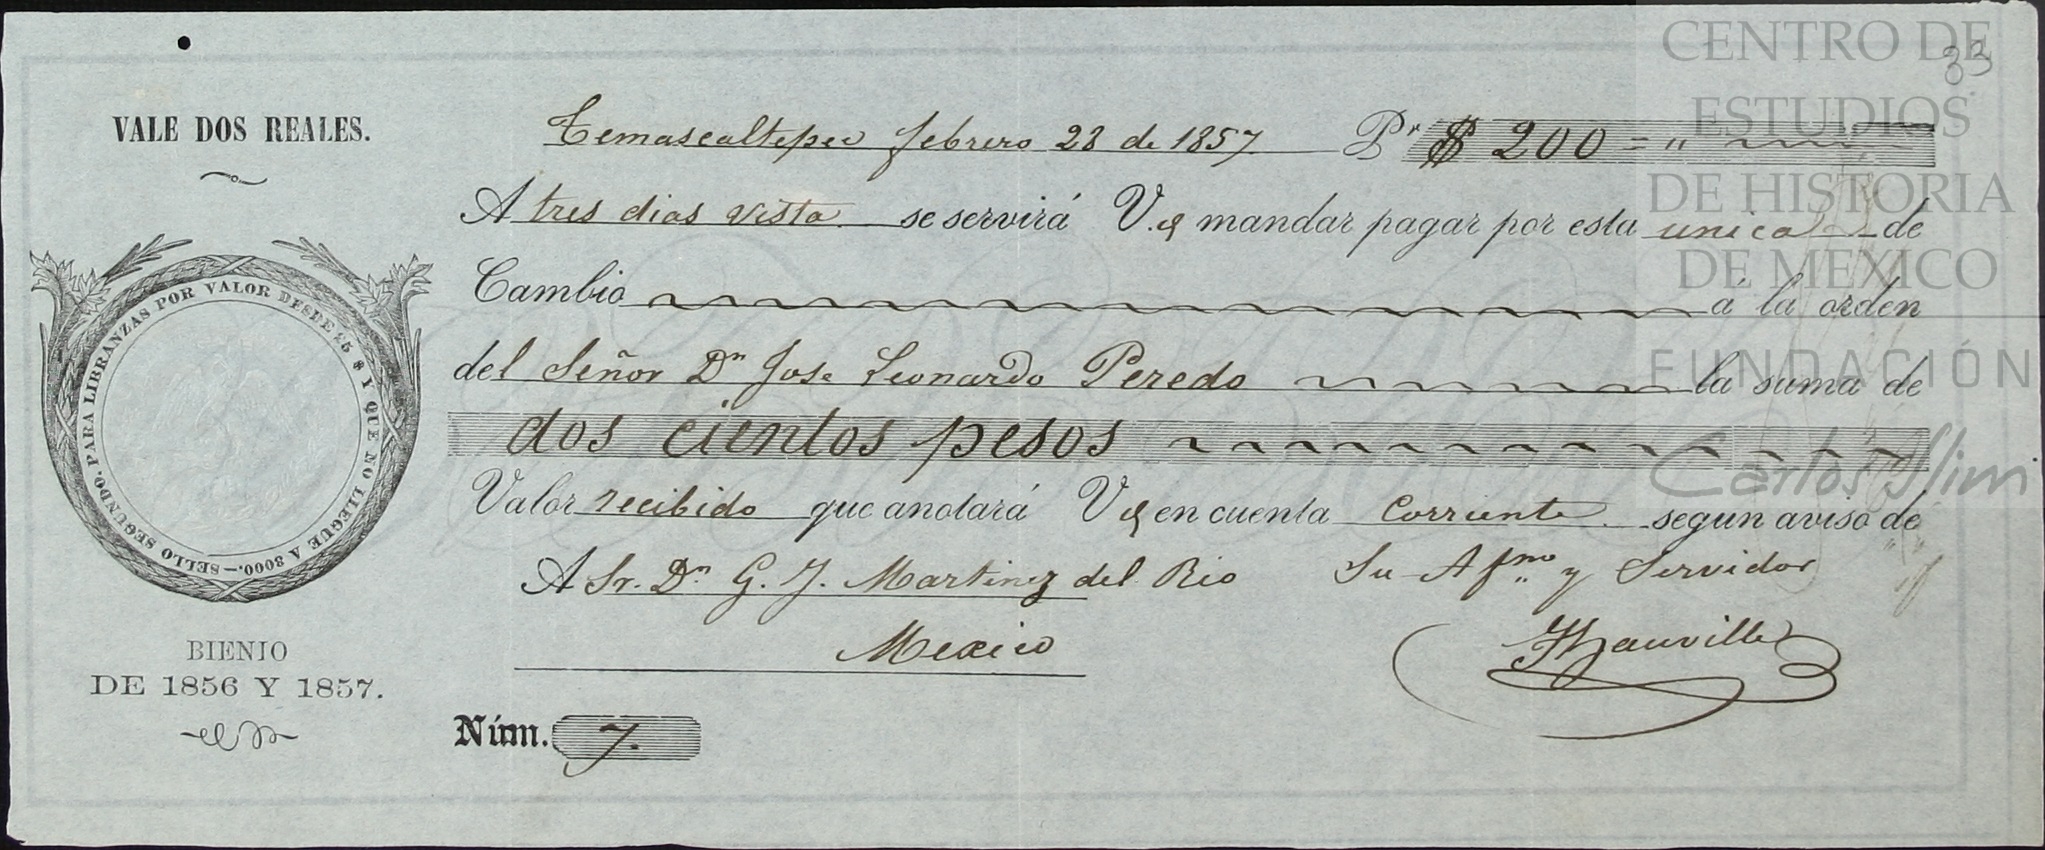 33
VALE DOS REALES.
Temascaltepec febrero 28 de 1857 Pr $ 200 = "
A tres dias vista se servirá V. mandar pagar por esta unica de
Cambio á la orden
del Señor Dn Jose Leonardo Peredo la suma de
dos cientos pesos
Valor recibido que anotará V en cuenta corriente segun aviso de
A Sr. Dn G. J. Martinez del Rio Su Afmo y Servidor
Mexico
SELLO SEGUNDO. PARA LIBRANZAS POR VALOR DESDE 25 $ Y QUE NO LLEGUE A 3000.—
BIENIO
DE 1856 Y 1857.
Núm. 7.
CENTRO DE
ESTUDIOS
DE HISTORIA
DE MEXICO
FUNDACIÓN
Carlos Slim